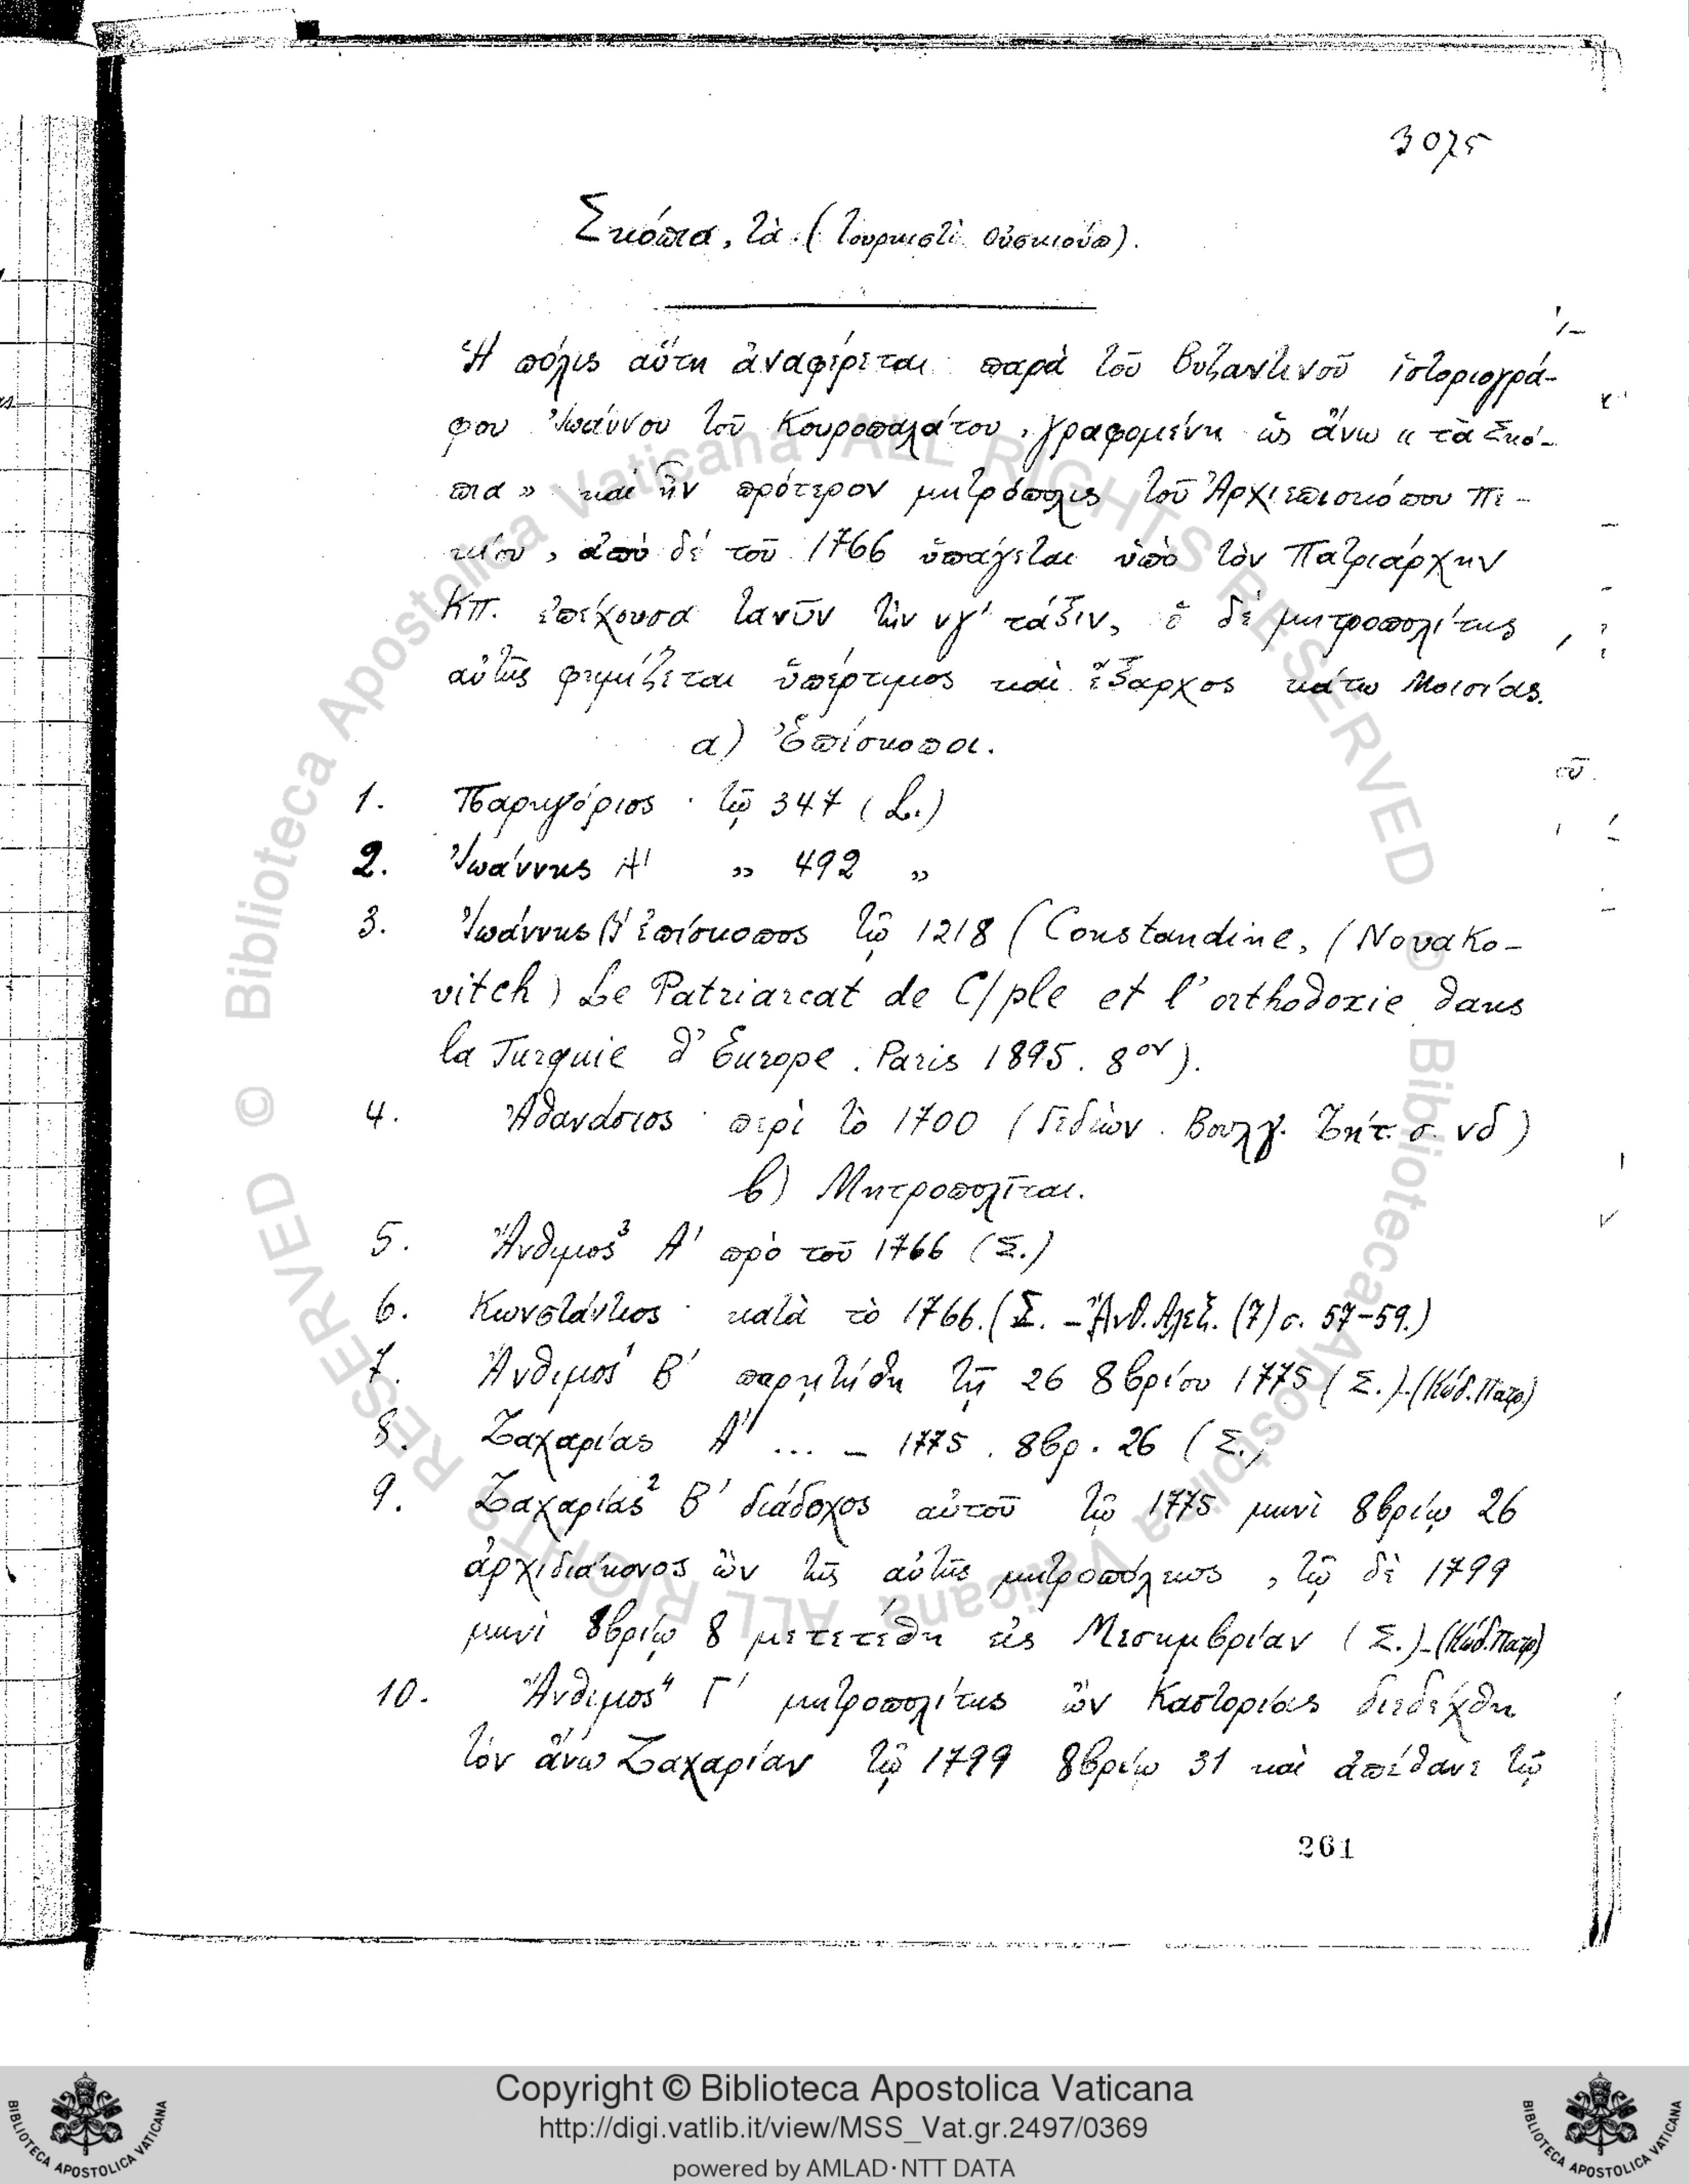 Σκόπια, τὰ (τουρκιστὶ Οὐσκιούπ).
Ἡ πόλις αὕτη ἀναφέρεται παρὰ τοῦ Βυζαντινοῦ ἱστοριογρά-
φου Ἰωάννου τοῦ Κουροπαλάτου, γραφομένη ὡς ἄνω « τὰ Σκό-
πια » καὶ ἦν πρότερον μητρόπολις τοῦ Ἀρχιεπισκόπου Πε-
κίου, ἀπὸ δέ τοῦ 1766 ὑπάγεται ὑπὸ τὸν Πατριάρχην
ΚΠ. ἐπέχουσα τανῦν τὴν νγ' τάξιν, ὁ δέ μητροπολίτης
αὐτῆς φημίζεται ὑπέρτιμος καὶ ἔξαρχος κάτω Μοισίας.
α) Ἐπίσκοποι.
1. Παρηγόριος · τῷ 347 ( L.)
2. Ἰωάννης Α' " 492 "
3. Ἰωάννης Β' ἐπίσκοπος τῷ 1218 ( Constandine, (Novako-
vitch) Le Patriarcat de C/ple et l'orthodoxie dans
la Turquie d'Europe. Paris 1895. 8ον).
4. Ἀθανάσιος · περὶ τὸ 1700 (Γεδεών. Βουλγ. Ζητ. σ. νδ)
β) Μητροπολῖται.
5. Ἄνθιμος3 Α' πρὸ τοῦ 1766 (Σ.)
6. Κωνστάντιος · κατὰ τὸ 1766. (Σ. – Ἄνθ. Ἀλεξ. (7) σ. 57–59.)
7. Ἄνθιμος Β' παρῃτήθη τῇ 26 8βρίου 1775 (Σ.)-(Κώδ. Πατρ.)
8. Ζαχαρίας Α' ... – 1775. 8βρ. 26 (Σ.)
9. Ζαχαρίας2 Β' διάδοχος αὐτοῦ τῷ 1775 μηνὶ 8βρίῳ 26
ἀρχιδιάκονος ὢν τῆς αὐτῆς μητροπόλεως, τῷ δὲ 1799
μηνὶ 8βρίῳ 8 μετετέθη εἰς Μεσημβρίαν (Σ.)-(Κώδ. Πατρ)
10. Ἄνθιμος4 Γ' μητροπολίτης ὢν Καστορίας διεδέχθη
τὸν ἄνω Ζαχαρίαν τῷ 1799 8βρίῳ 31 καὶ ἀπέθανε τῷ
261
Copyright © Biblioteca Apostolica Vaticana
http://digi.vatlib.it/view/MSS_Vat.gr.2497/0369
powered by AMLAD·NTT DATA
BIBLIOTECA APOSTOLICA VATICANA
BIBLIOTECA APOSTOLICA VATICANA
© Biblioteca Apostolica Vaticana ALL RIGHTS RESERVED © Biblioteca Apostolica Vaticana ALL RIGHTS RESERVED